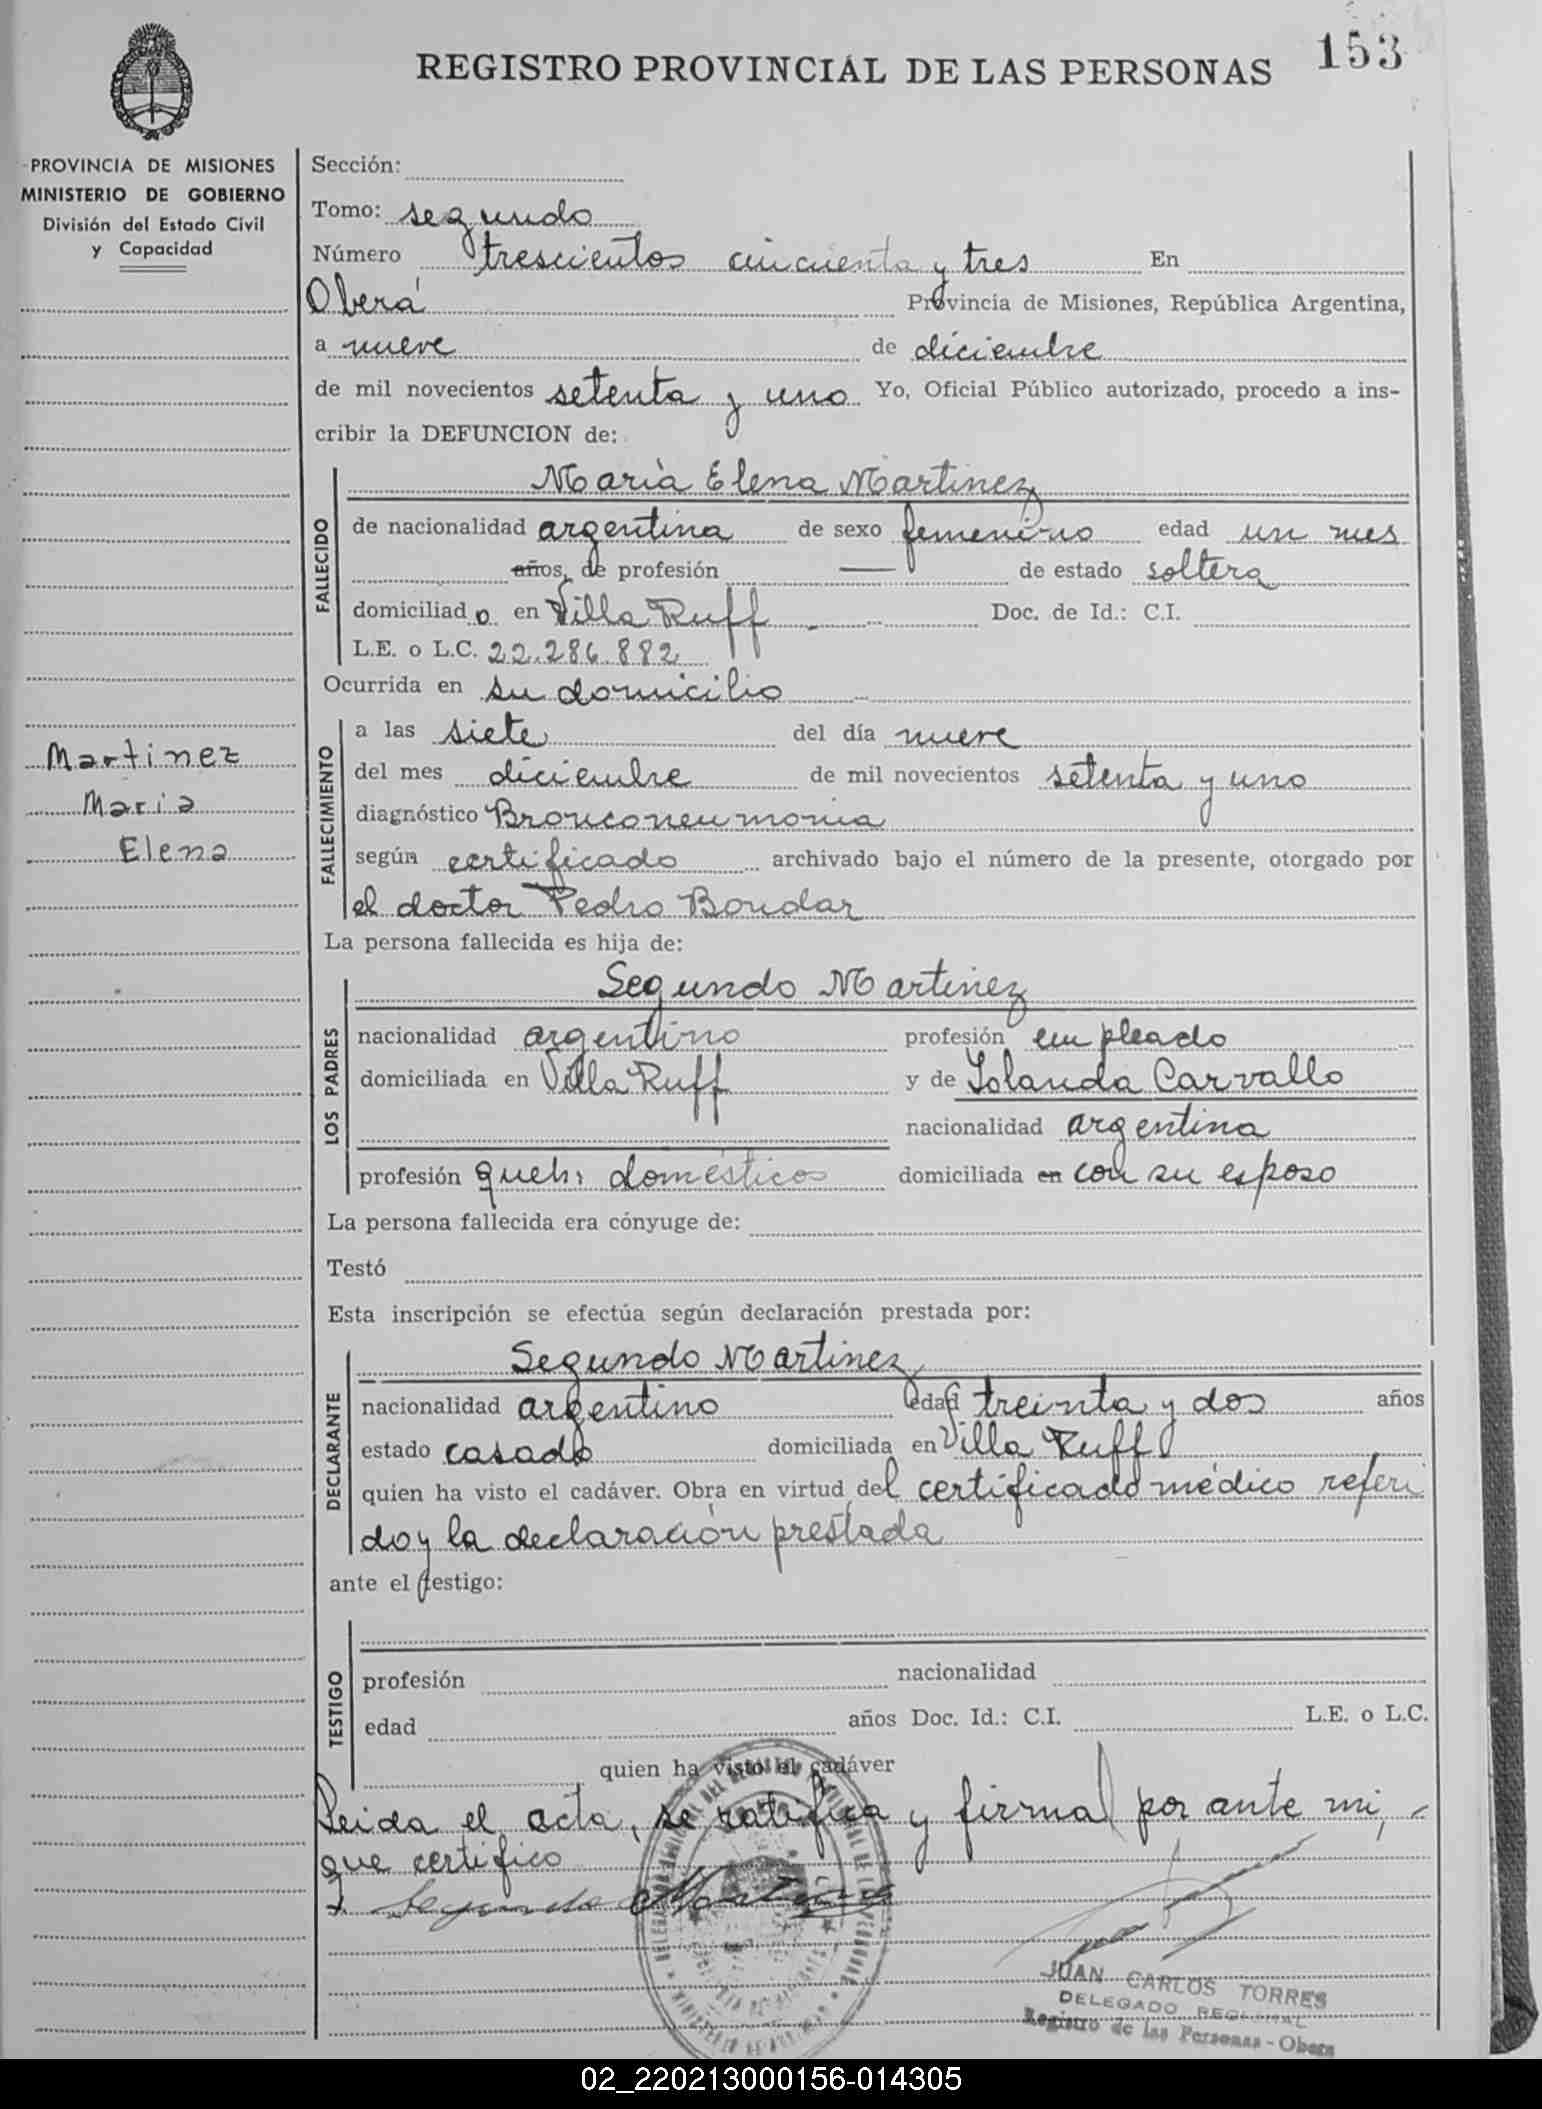 153
REGISTRO PROVINCIAL DE LAS PERSONAS
PROVINCIA DE MISIONES
MINISTERIO DE GOBIERNO
División del Estado Civil
y Capacidad
Sección:
Tomo: segundo
Número trescientos cincuenta y tres En
Oberá Provincia de Misiones, República Argentina,
a nueve de diciembre
de mil novecientos setenta y uno Yo, Oficial Público autorizado, procedo a ins-
cribir la DEFUNCION de:
FALLECIDO
Maria Elena Martinez
de nacionalidad argentina de sexo femenino edad un mes
años, de profesión — de estado soltera
domiciliado en Villa Ruff Doc. de Id.: C.I.
L.E. o L.C. 22.286.882
Ocurrida en su domicilio
FALLECIMIENTO
a las siete del día nueve
del mes diciembre de mil novecientos setenta y uno
diagnóstico Bronconeumonia
según certificado archivado bajo el número de la presente, otorgado por
el doctor Pedro Bondar
Martinez
Maria
Elena
La persona fallecida es hija de:
LOS PADRES
Segundo Martinez
nacionalidad argentino profesión empleado
domiciliada en Villa Ruff y de Iolanda Carvallo
nacionalidad argentina
profesión queh: domésticos domiciliada en con su esposo
La persona fallecida era cónyuge de:
Testó
Esta inscripción se efectúa según declaración prestada por:
DECLARANTE
Segundo Martinez
nacionalidad argentino edad treinta y dos años
estado casado domiciliada en Villa Ruff
quien ha visto el cadáver. Obra en virtud del certificado médico referi
do y la declaración prestada
ante el testigo:
TESTIGO
profesión nacionalidad
edad años Doc. Id.: C.I. L.E. o L.C.
quien ha visto el cadáver
Leida el acta, se ratifica y firma por ante mi,
que certifico
Segundo Martinez
JUAN CARLOS TORRES
DELEGADO REGIONAL
Registro de las Personas - Obera
02_220213000156-014305